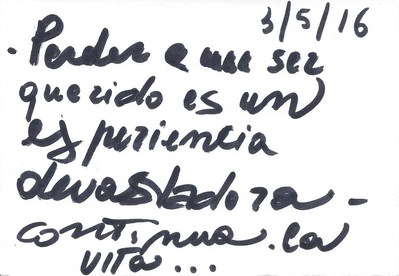 3/5/16
. Perder a una ser
querido es un
esperiencia
devastadora -
continua. la
vita...